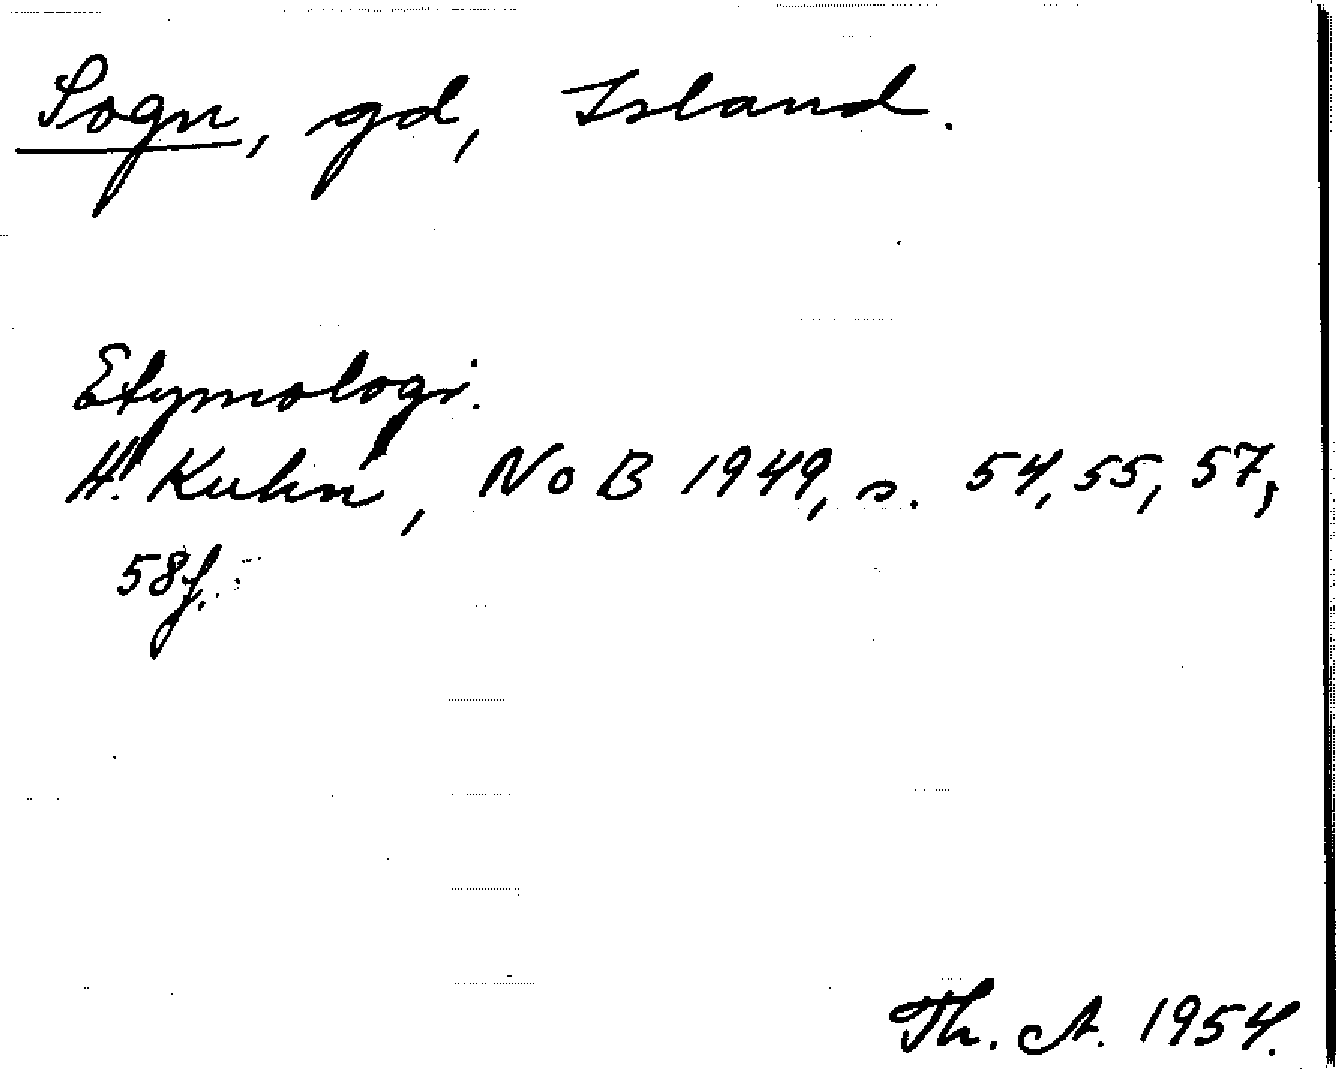 Sogn, gd, Island.
Etymologi.
H. Kuhn, NoB 1949, s. 54, 55, 57,
58f.
Th. A. 1954.